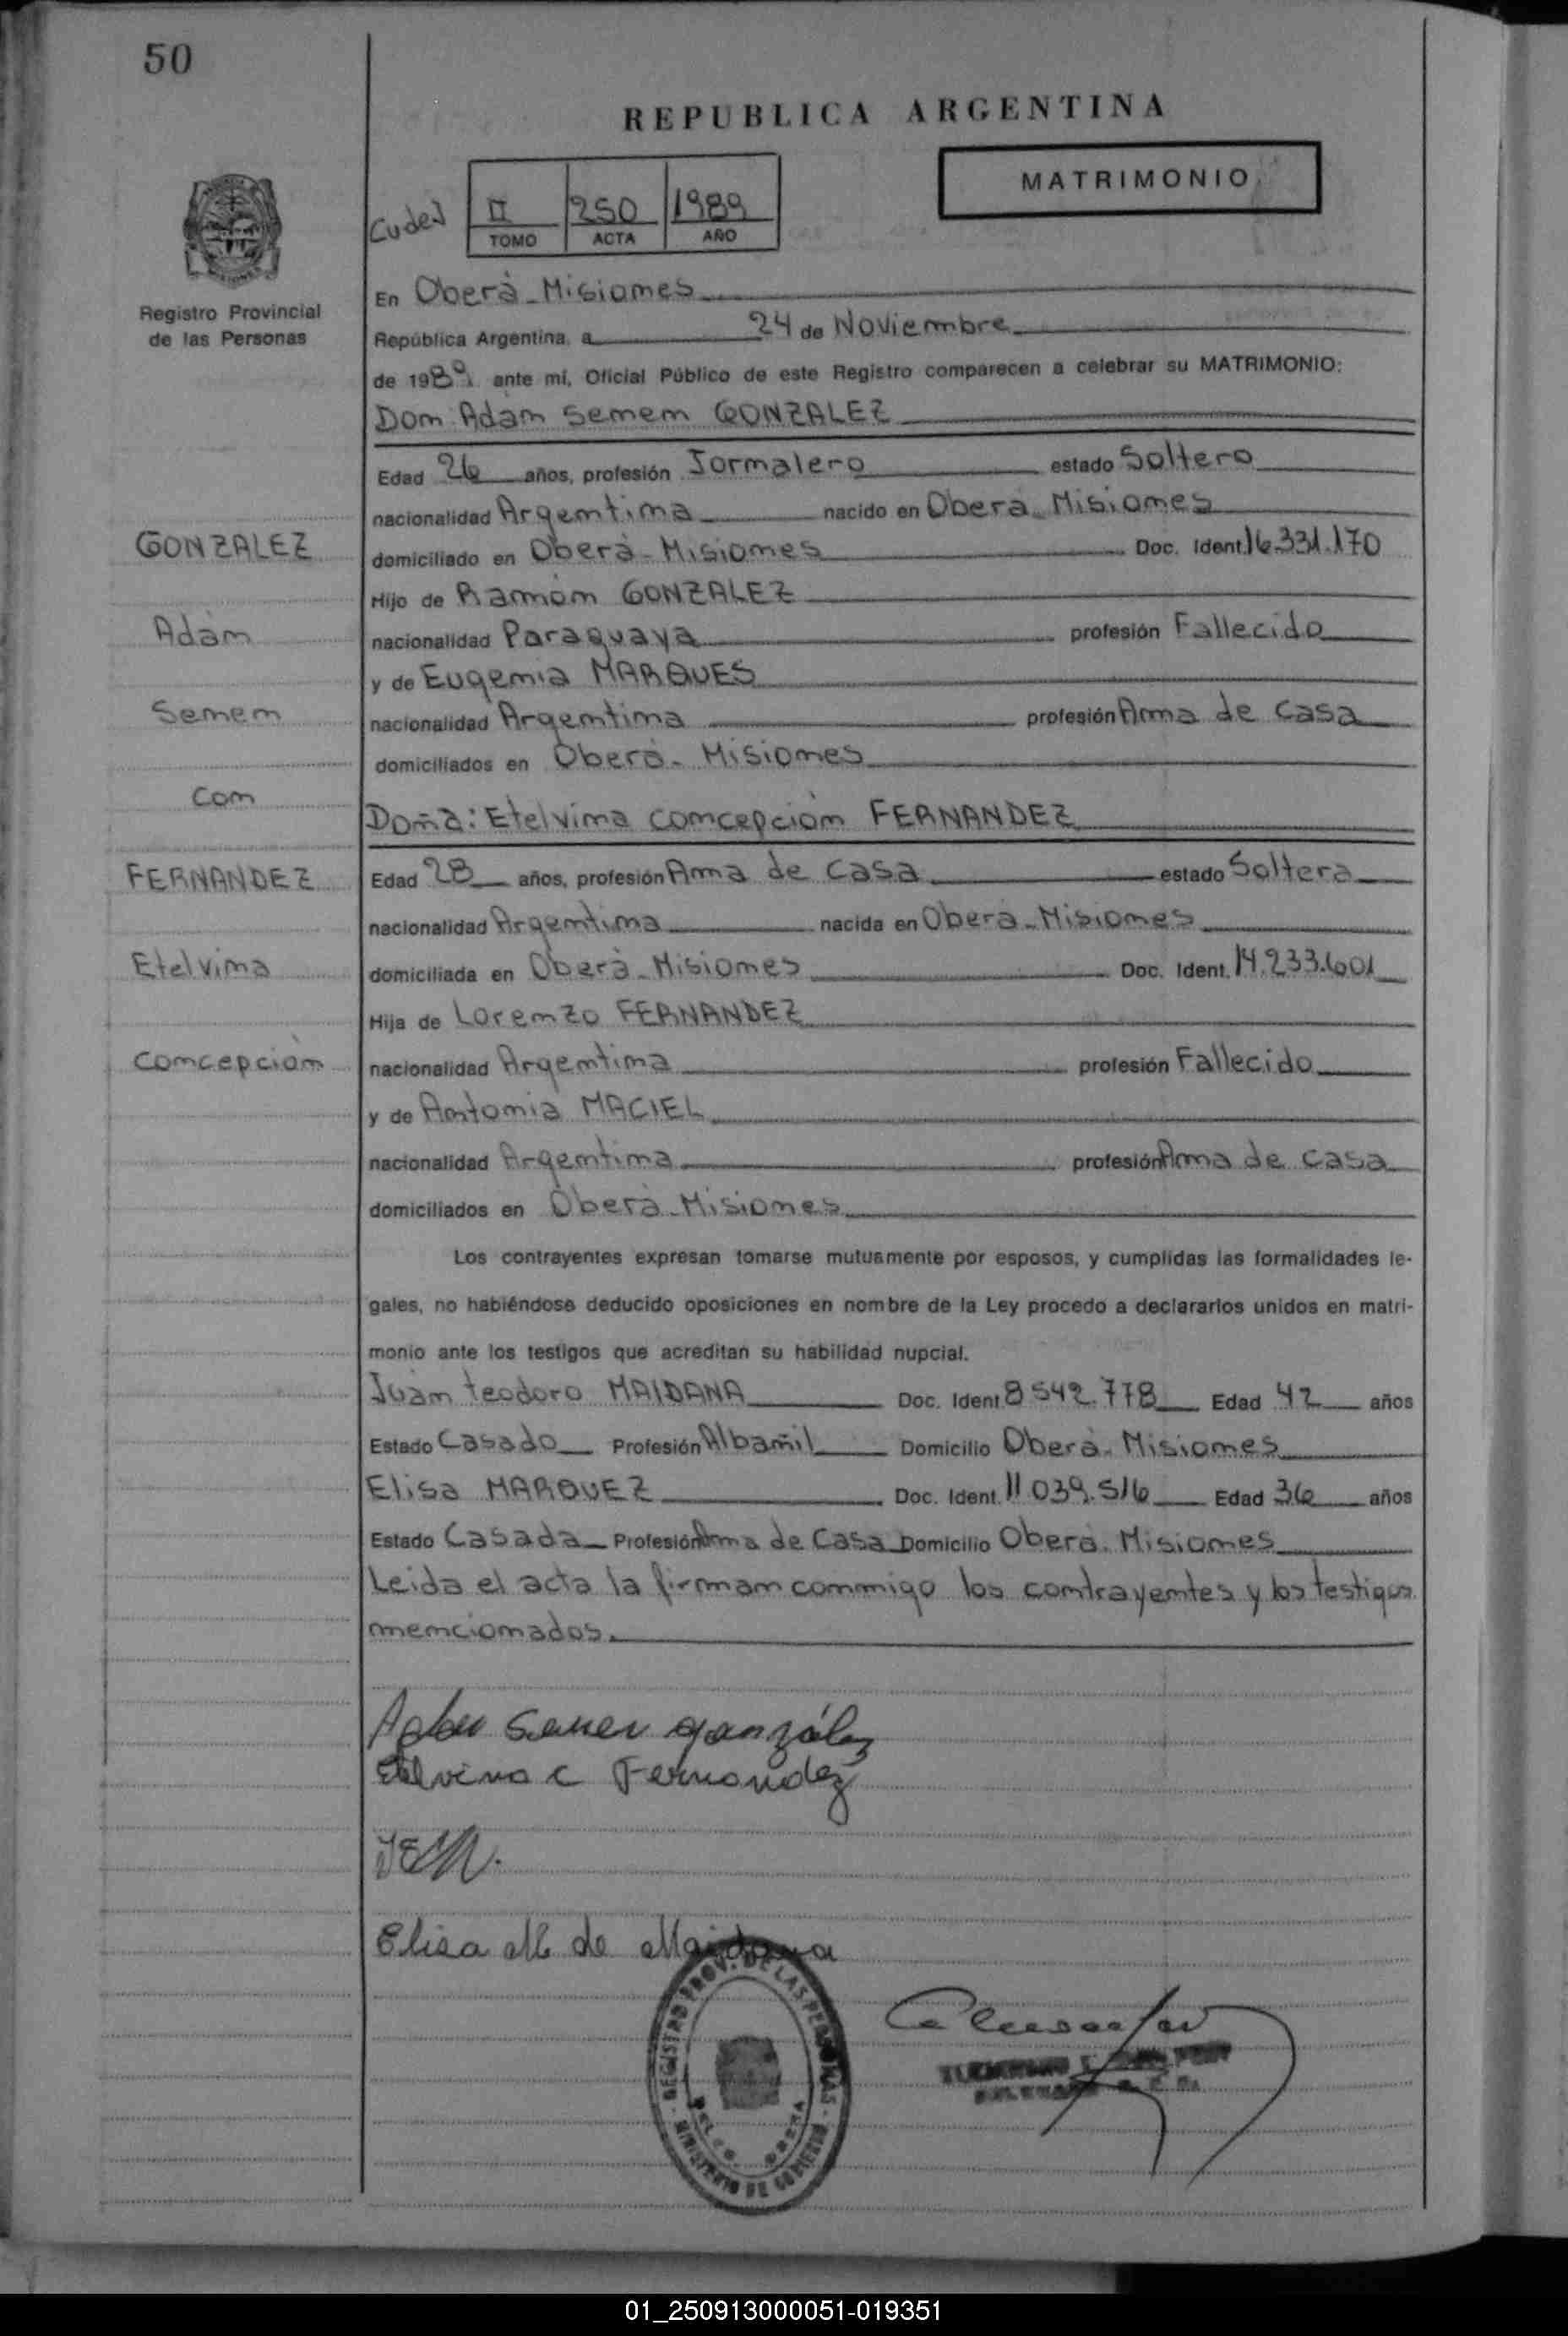 50
REPUBLICA ARGENTINA
MATRIMONIO
II 250 1989
TOMO ACTA AÑO
Registro Provincial
de las Personas
En Oberà - Misiones
República Argentina, a 24 de Noviembre
de 1989 ante mí, Oficial Público de este Registro comparecen a celebrar su MATRIMONIO:
Don: Adàn Senen GONZALEZ
Edad 26 años, profesión Jornalero estado Soltero
nacionalidad Argentina nacido en Oberà - Misiones
GONZALEZ
domiciliado en Oberà - Misiones Doc. Ident. 16.331.170
Hijo de Ramòn GONZALEZ
Adàn
nacionalidad Paraguaya profesión Fallecido
y de Eugenia MARQUES
Senen
nacionalidad Argentina profesión Ama de Casa
domiciliados en Oberà - Misiones
Con
Doña: Etelvina Concepciòn FERNANDEZ
FERNANDEZ
Edad 28 años, profesión Ama de Casa estado Soltera
nacionalidad Argentina nacida en Oberà - Misiones
Etelvina
domiciliada en Oberà - Misiones Doc. Ident. 14.233.601
Hija de Lorenzo FERNANDEZ
Concepciòn
nacionalidad Argentina profesión Fallecido
y de Antonia MACIEL
nacionalidad Argentina profesión Ama de Casa
domiciliados en Oberà - Misiones
Los contrayentes expresan tomarse mutuamente por esposos, y cumplidas las formalidades le-
gales, no habiéndose deducido oposiciones en nombre de la Ley procedo a declararlos unidos en matri-
monio ante los testigos que acreditan su habilidad nupcial.
Juan Teodoro MAIDANA Doc. Ident 8.542.778 Edad 42 años
Estado Casado Profesión Albañil Domicilio Oberà - Misiones
Elisa MARQUEZ Doc. Ident. 11.039.516 Edad 36 años
Estado Casada Profesión Ama de Casa Domicilio Oberà - Misiones
Leida el acta la firman conmigo los contrayentes y los testigos
mencionados.
Adan Senen gonzález
Etelvina c Fernandez
Elisa M de Maidana
REGISTRO PROV. DE LAS PERSONAS
MINISTERIO DE GOBIERNO
01_250913000051-019351